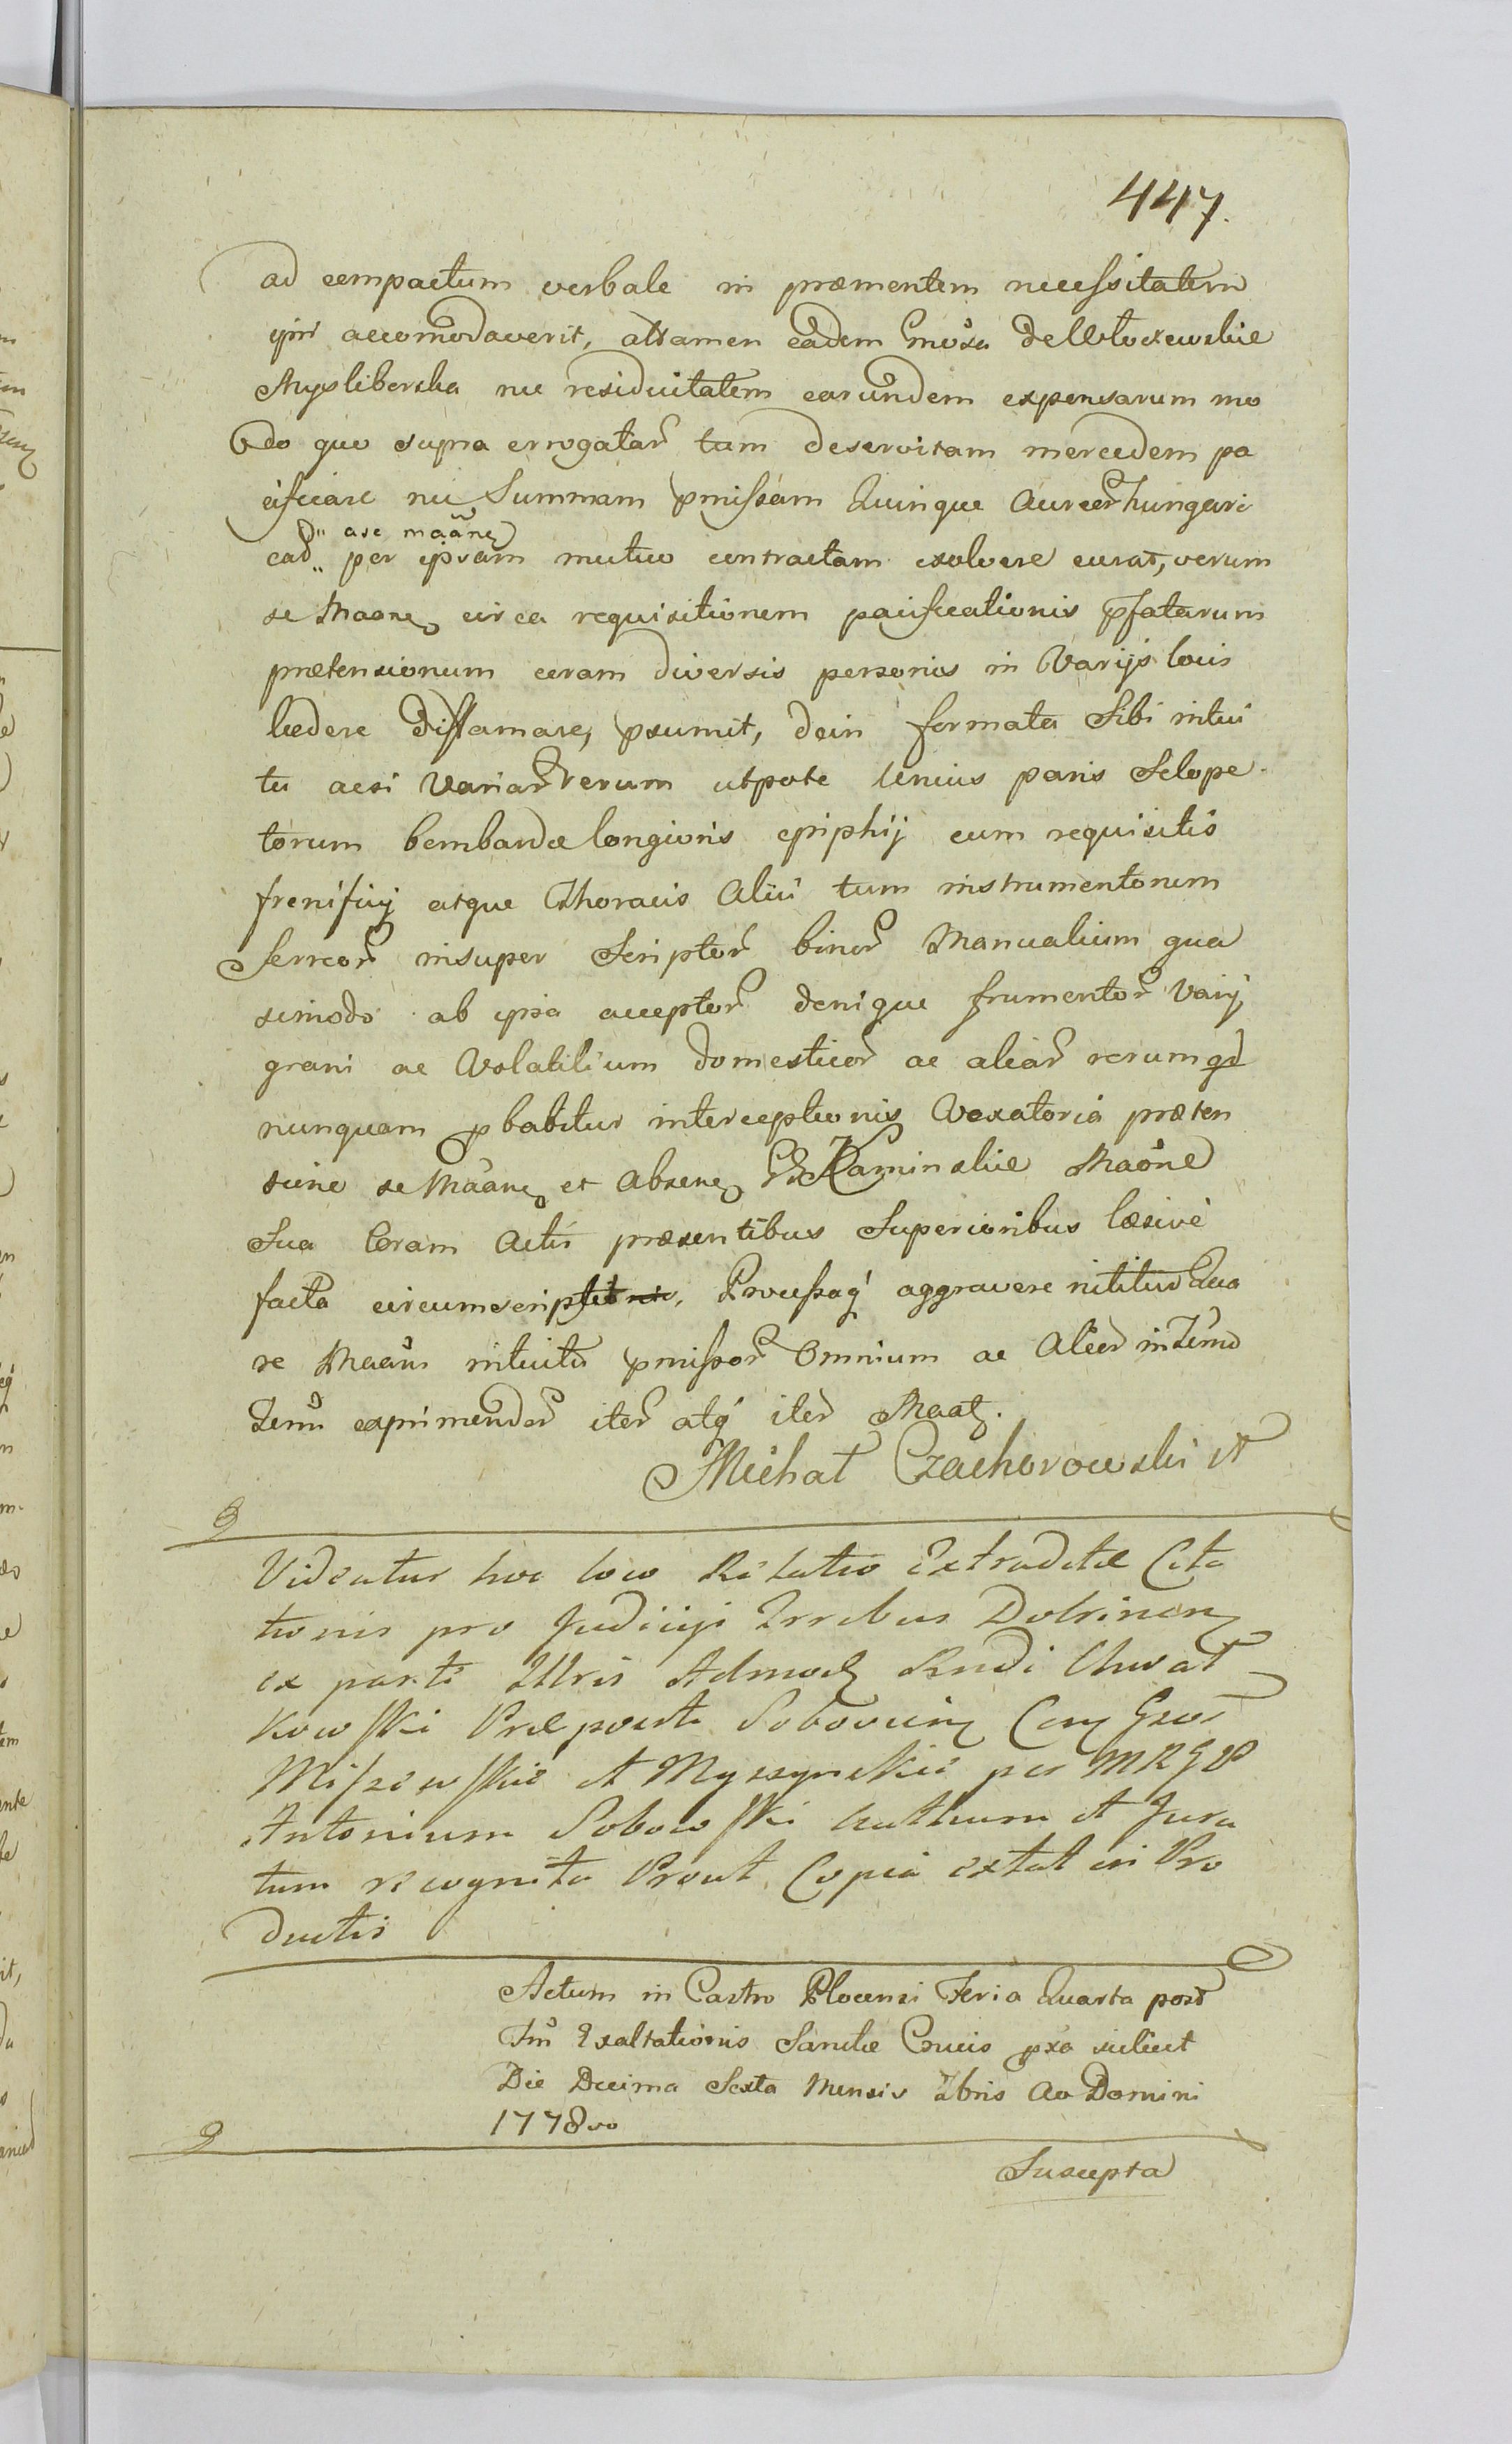 447.
ad compactum verbale in præmentem necessitatem
ipsi accomodaverit, attamen eadem Gnosa de Włoczewskie
Mysliborska nec residuitatem earundem expensarum mo
do quo supra errogatar tum deservitam mercedem pa
cificare nec Summam pmissam Quinque Aureor hungari
cad a se maāne
per ipsam mutuo contractam exolvere curat, verum
se Maane circa requisitionem pacificationis pfatarum
prætensionum coram diversis personis in Varijs locis
lædere diffamare, psumit, dein formata Sibi intui
tu acsi Variar rerum utpote Unius paris Sclope-
torum bombardæ longioris epiphij cum requisitis
frenificij atque Thoracis Alii tum instrumentorum
ferreor insuper Scriptor binor Manualium qua
simodo ab ipsa acceptor denique frumentor Varij
grani ac Volatilium domesticor ac aliar rerum qd
nunquam pbabitur interceptionis Vexatoria præten
sione se Maane et Absene G Kaminskie Maone
Sua Coram Actis præsentibus Superioribus læsive
facta circumscriptio, Processaq aggravere nititur Qua
re Maaus intuitu pmissor Omnium ac Alior in Termo
Termi exprimendor iter atq iter Maat.
Michał Czachorowski
Videatur hoc loco Relatio Extraditæ Cita
tionis pro Judicijs Trrbus Dobrinen
ex parte Illris Admod Rndi Chwat
kowski Præposti Sobovien Con Gsos
Miszewskie et Myszynskie per MRGD
Antonium Sobowski Authum et Jura
tum recognita Prout Copia extat in Pro
ductis
Actum in Castro Plocensi Feria Quarta post
Fm Exaltationis Sanctæ Crucis pxa scilicet
Die Decima Sexta Mensis 7bris Ao Domini
1778vo
Suscepta